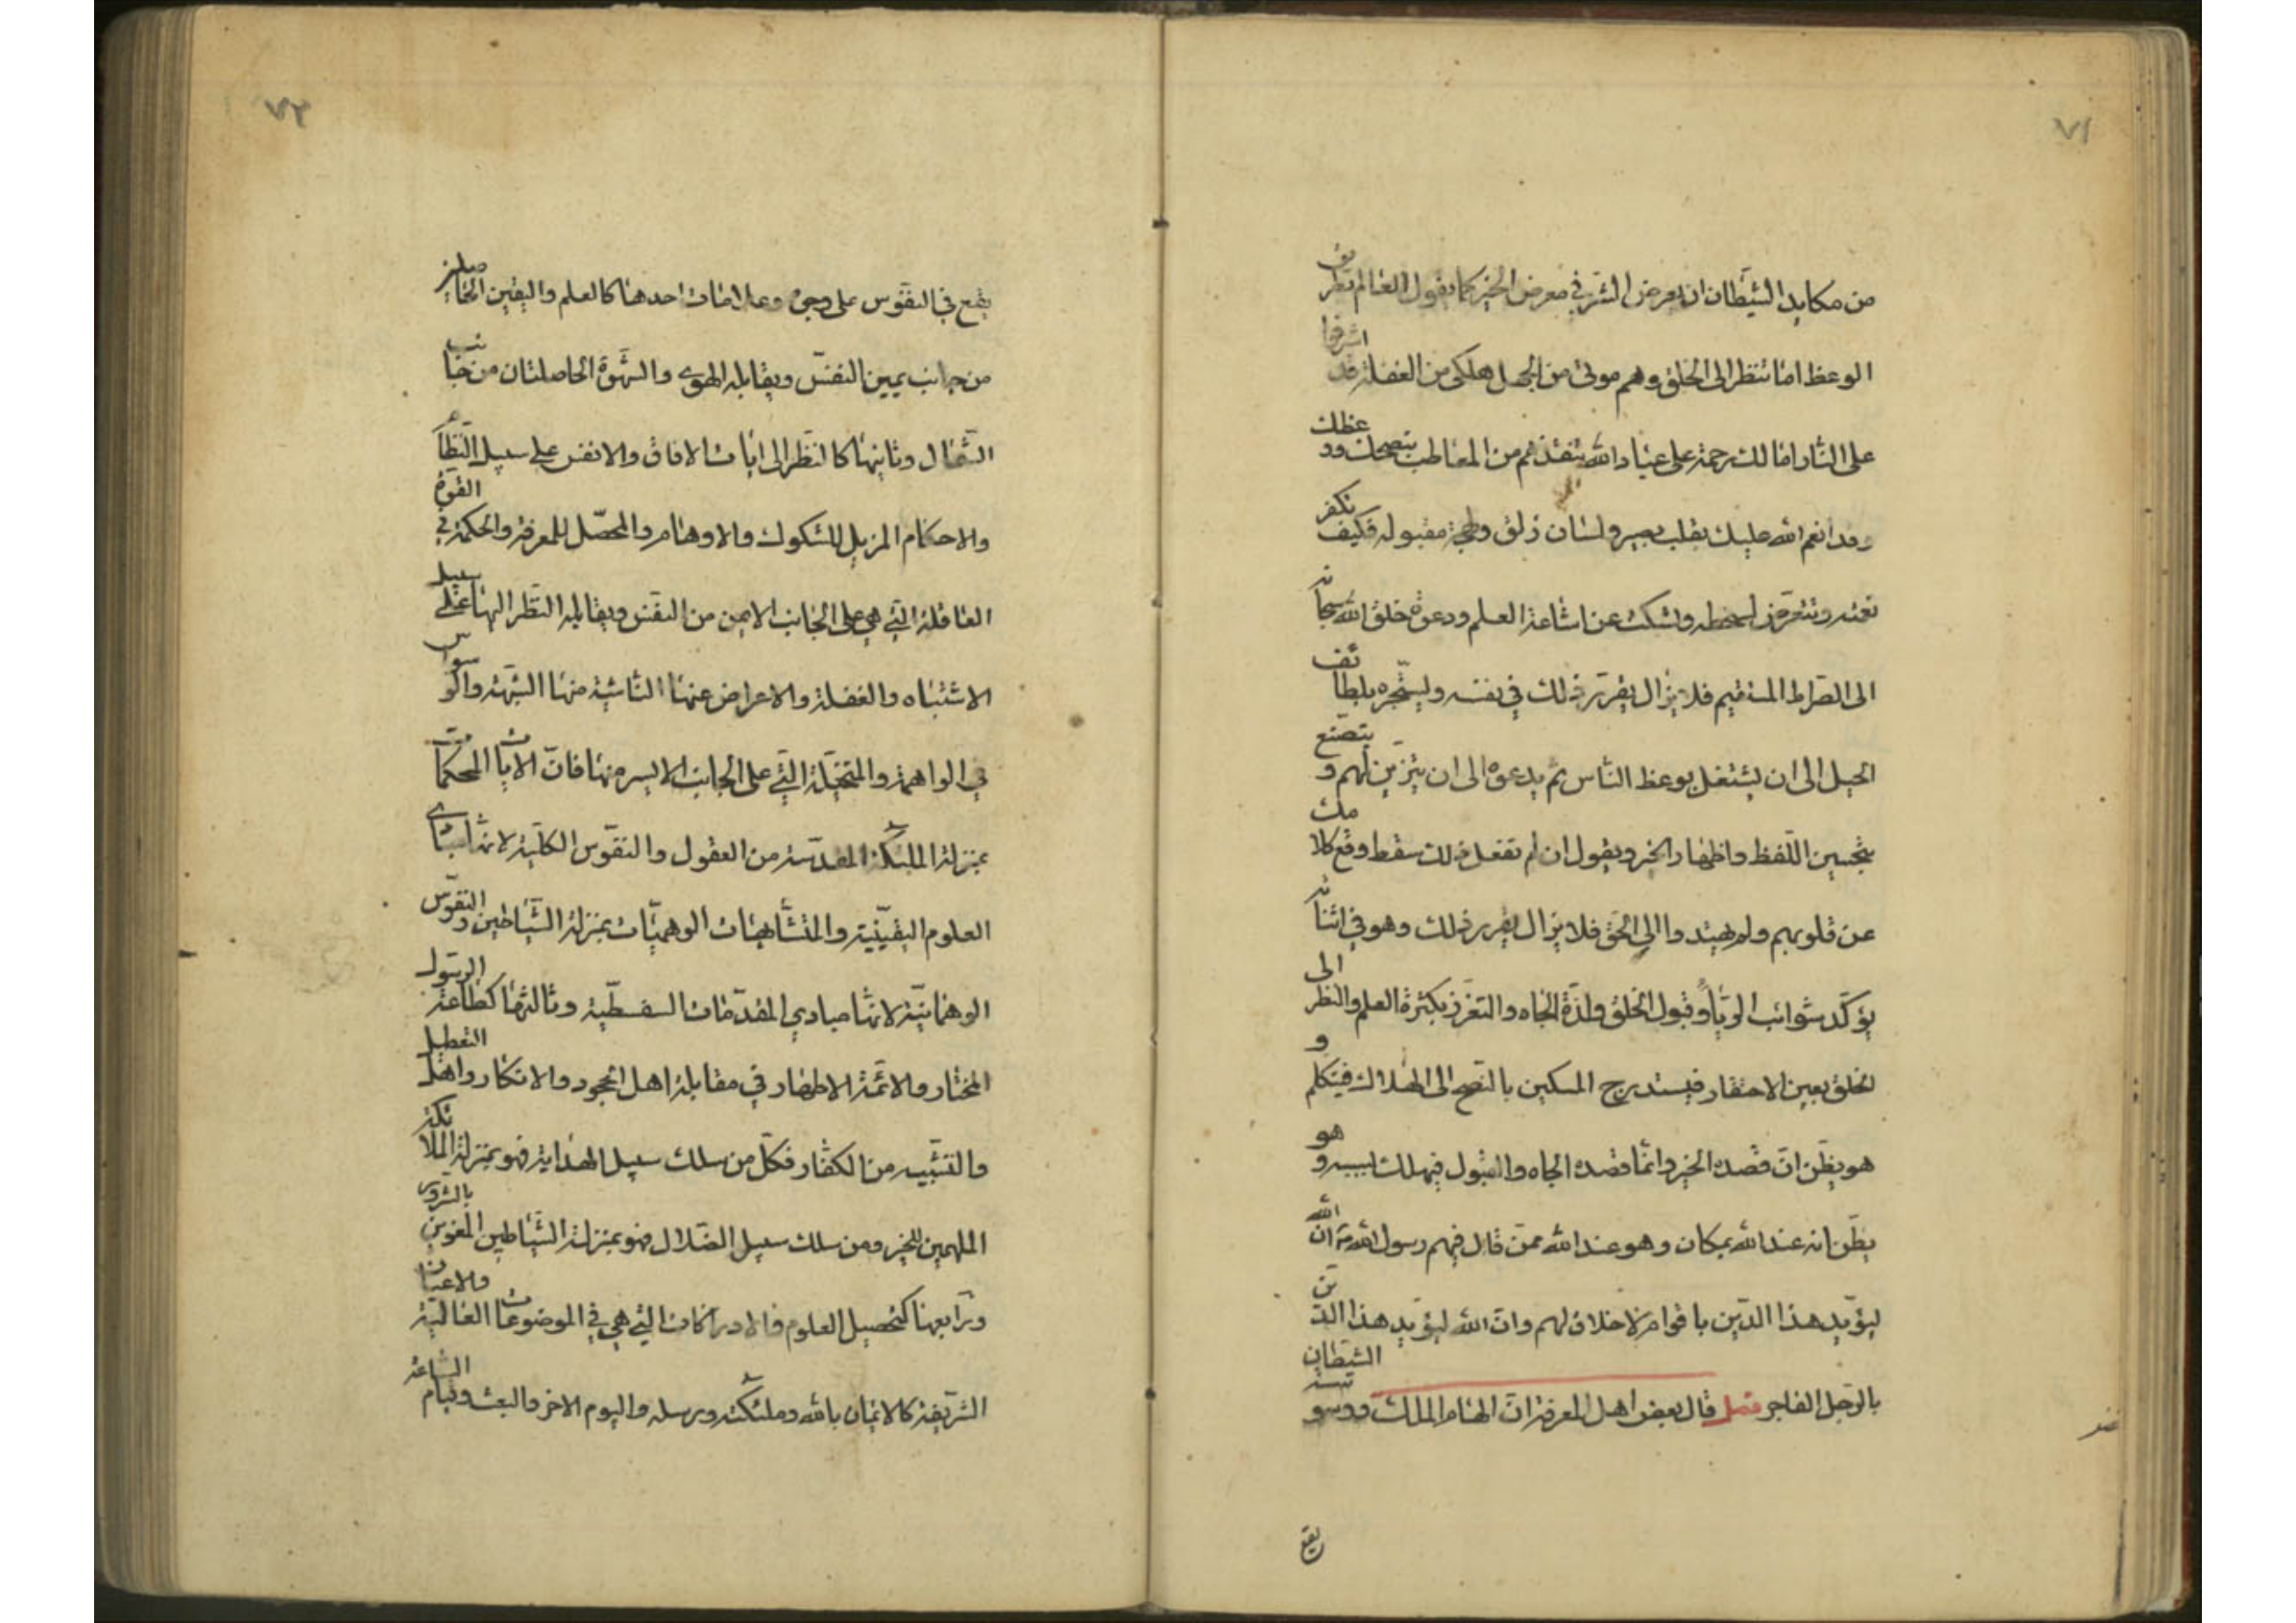 ٧١
من مكايد الشيطان ان يعرض الشر في معرض الخير كما يقول للعالم بطريق
الوعظ اما تنظر الى الخلق وهم موتى من الجهل هلكى من الغفلة قد اشرفوا
على النار اما لك رحمة على عباد الله تنقذهم من المعاطب بنصحك ووعظك
وقد انعم الله عليك بقلب بصير ولسان ذلق ولهجة مقبولة فكيف تكفر
نعمته وتتعرض لسخطه وتسكت عن اشاعة العلم ودعوة خلق الله سبحانه
الى الصراط المستقيم فلا يزال يقرر ذلك في نفسه ويستجره بلطائف
الحيل الى ان يشتغل بوعظ الناس ثم يدعوه الى ان يتزين لهم ويتصنع
بتحسين اللفظ واظهار الخير ويقول ان لم تفعل ذلك سقط وقع كلامك
عن قلوبهم ولم يهتدوا الى الحق فلا يزال يقرر ذلك وهو في اثنائه
يؤكد شوائب الريا وقبول الخلق ولذة الجاه والتعزز بكثرة العلم والنظر الى
الخلق بعين الاحتقار فيستدرج المسكين بالنصح الى الهلاك فيتكلم و
هو يظن ان قصده الخير وانما قصده الجاه والقبول فيهلك بسببه وهو
يظن انه عند الله بمكان وهو عند الله ممن قال فيهم رسول الله ص ان الله
ليؤيد هذا الدين باقوام لا خلاق لهم وان الله ليؤيد هذا الدين
بالرجل الفاجر فصل قال بعض اهل المعرفة ان الهام الملك ووسوسة الشيطان
يقع
٧٢
يقع في النفوس على وجوه وعلامات احدها كالعلم واليقين الحاصلين
من جانب يمين النفس ويقابله الهوى والشهوة الحاصلتان من جانب
الشمال وثانيها كالنظر الى ايات الافاق والانفس على سبيل النظام
والاحكام المزيل للشكوك والاوهام والمحصل للمعرفة والحكمة في القوة
العاقلة التي هي على الجانب الايمن من النفس ويقابله النظر اليها على سبيل
الاشتباه والغفلة والاعراض عنها الناشية منها الشبهة والوسواس
في الواهمة والمتخيلة التي على الجانب الايسر منها فان الايات المحكمات
بمنزلة الملئكة المقدسة من العقول والنفوس الكلية لانها مبادي
العلوم اليقينية والمتشابهات الوهميات بمنزلة الشياطين والنفوس
الوهمانية لانها مبادي المقدمات السفسطية وثالثها كطاعة الرسول
المختار والائمة الاطهار في مقابلة اهل الجحود والانكار واهل التعطيل
والتشبيه من الكفار فكل من سلك سبيل الهداية فهو بمنزلة الملائكة
الملهمين للخير ومن سلك سبيل الضلال فهو بمنزلة الشياطين المغوين بالشرور
ورابعها كتحصيل العلوم والادراكات التي هي في الموضوعات العالية والاعيان
الشريفة كالايمان بالله وملئكته ورسله واليوم الاخر والبعث وقيام الساعة